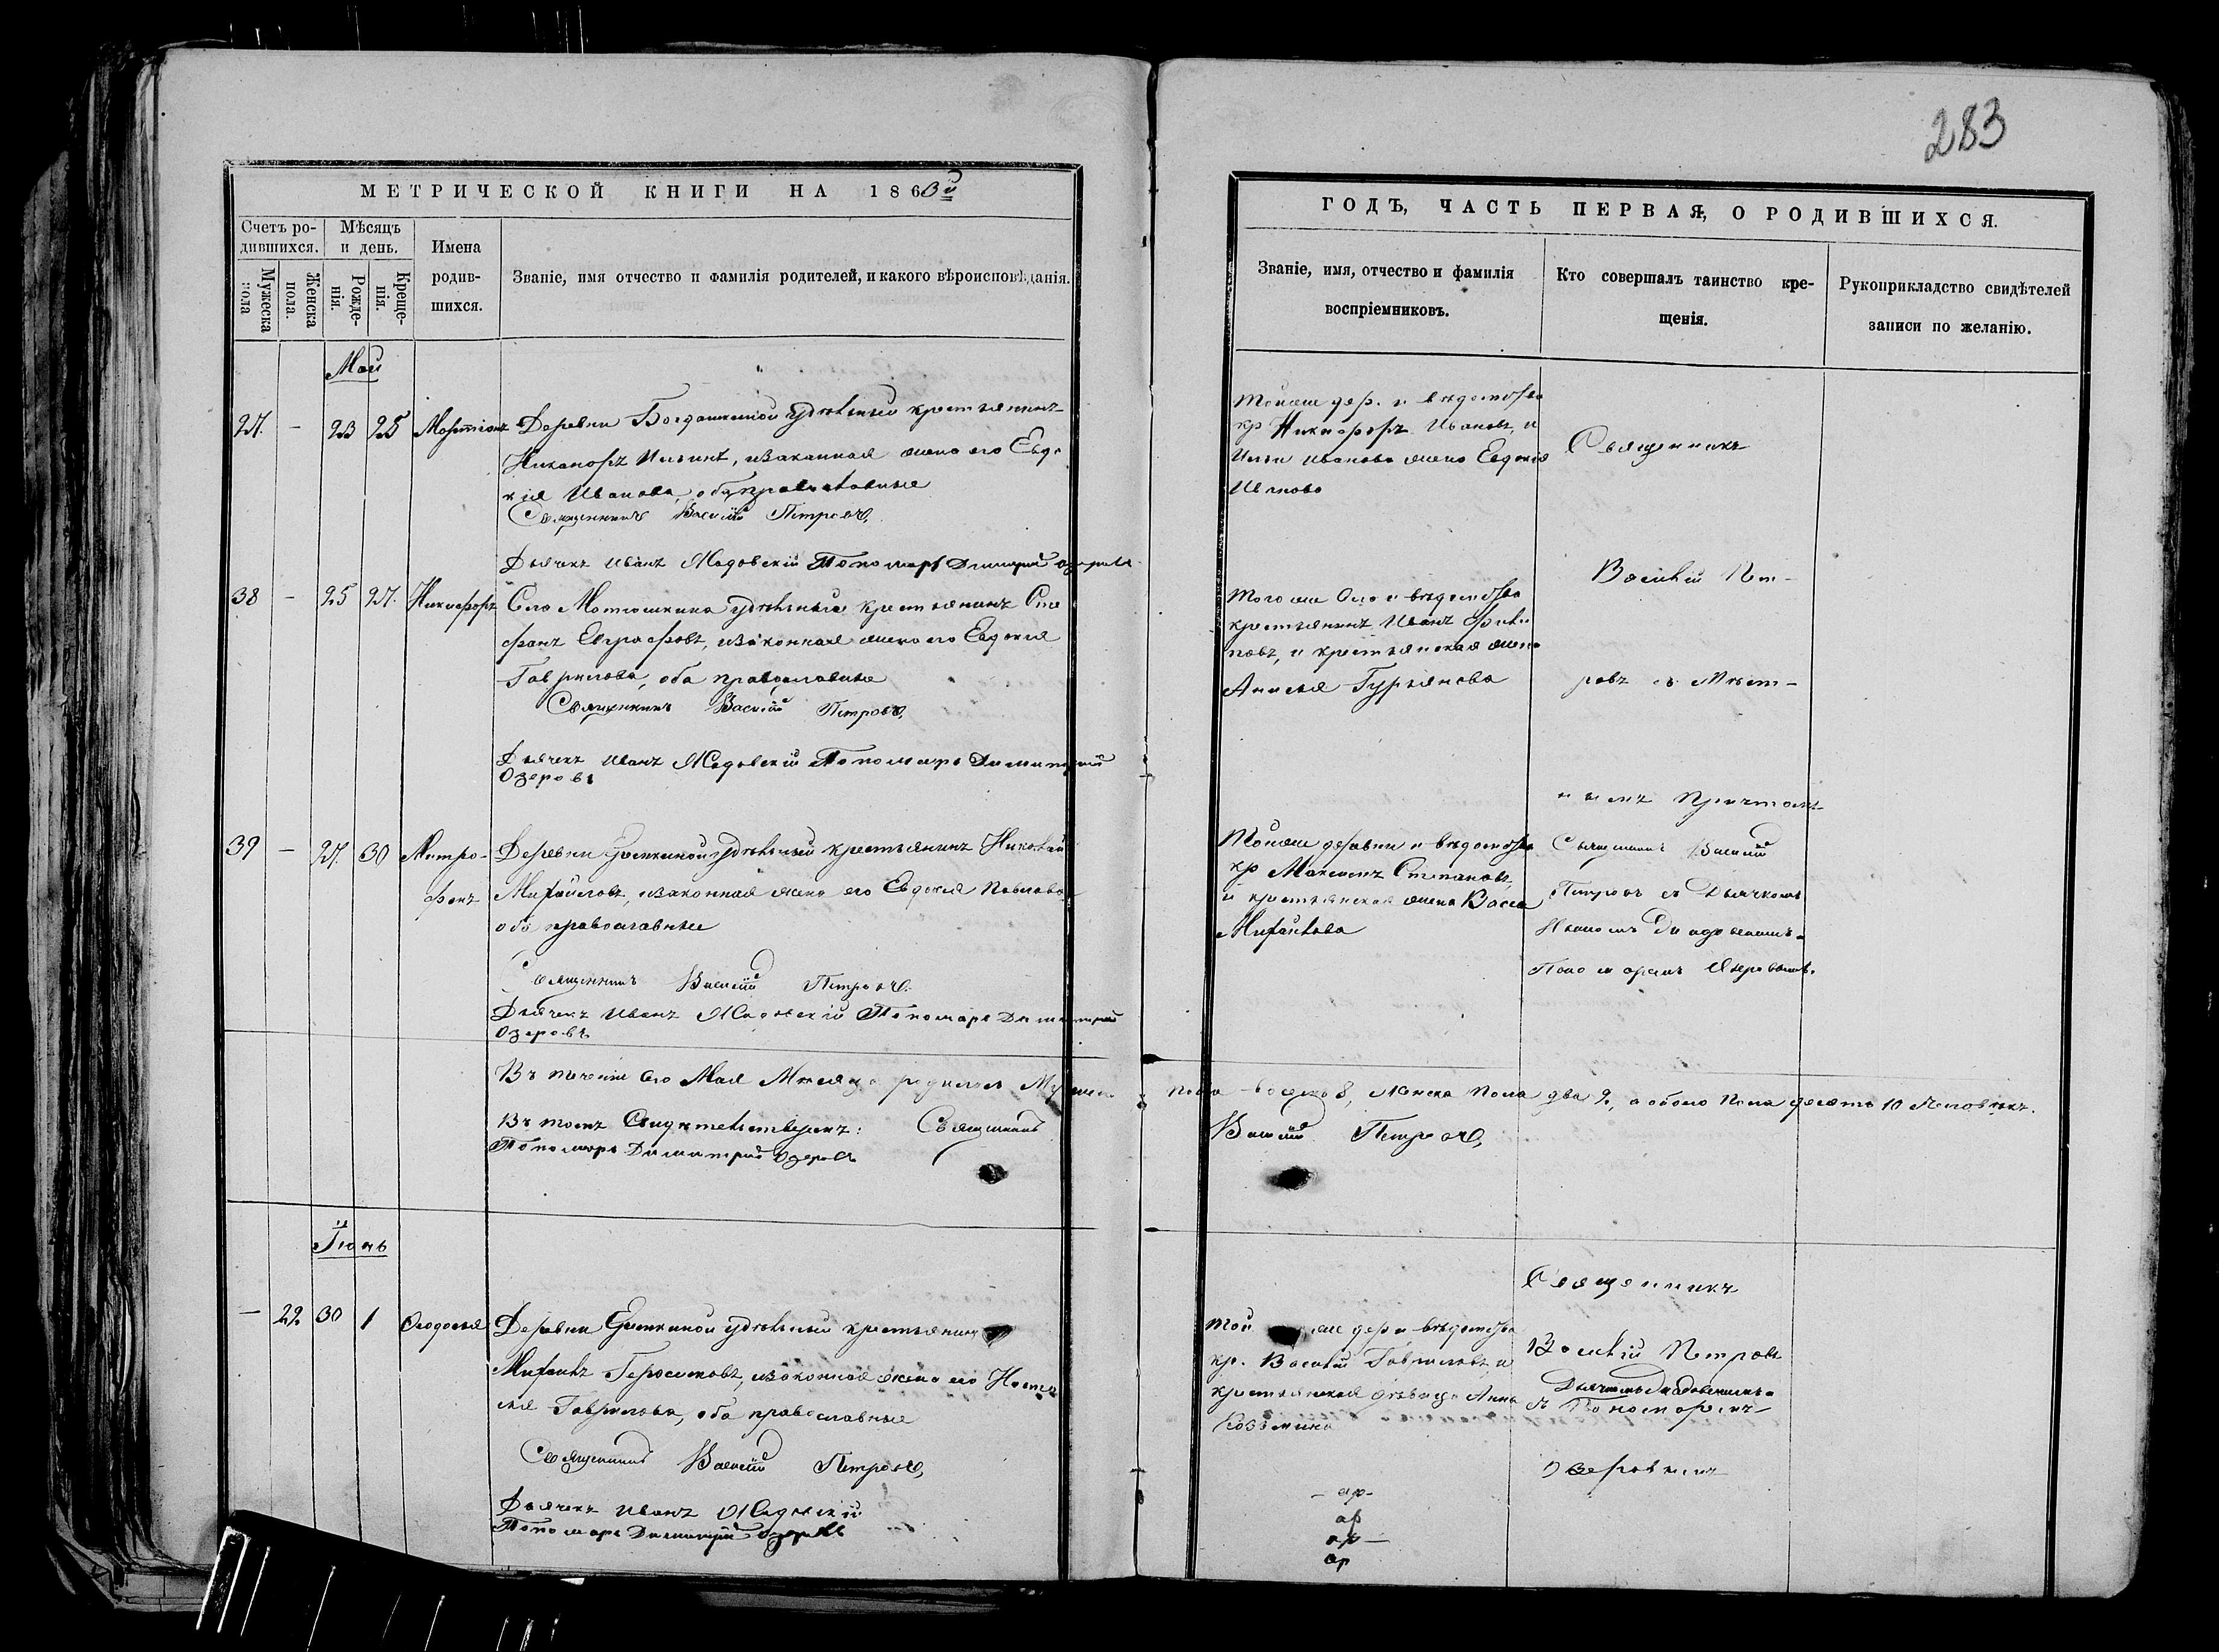 283
МЕТРИЧЕСКОЙ КНИГИ НА 1863й
Счетъ ро-
дившихся.
Мѣсяцъ
и день.
Имена
родив-
шихся.
Мужеска
пола
Женска
пола.
Рожде-
нія.
Креще-
нія.
Званіе, имя отчество и фамилія родителей, и какого вѣроисповѣданія.
Май
27. - 23 25 Деревни удѣльный крестьянинъ
Никаноръ Ильинъ, изаконная жена его Евдо
кія Иванова, оба православные
Священникъ Василій Петровъ,
Дьячекъ Иванъ Пономарь Димитрій Озеровъ
38 - 25 27. Никифоръ Село удѣльный крестьянинъ Сте
фанъ Евграфовъ, изаконная жена его Евдокія
Гаврилова, оба православные
Священникъ Василій Петровъ,
Дьячекъ Иванъ Пономарь Димитрій
Озеровъ
39 - 27. 30 Митро-
фанъ
Деревни удѣльный крестьянинъ Николай
Михайловъ, изаконная жена его Евдокія Павлова
оба православные
Священникъ Василій Петровъ.
Дьячекъ Иванъ Пономарь Димитрій
Озеровъ
Въ теченіи сего Мая Месяца родилось Мужеска
Въ томъ Свидѣтельствуемъ: Священникъ
Пономарь Димитрій Озеровъ
Іюнь
- 22 30 1 Деревни удѣльный крестьянинъ
Михаилъ Герасимовъ, изаконная жена его Настась
Гаврилова, оба православные
Священникъ Василій Петровъ,
Дьячекъ Иванъ
Пономарь Димитрій Озеровъ
ГОДЪ, ЧАСТЬ ПЕРВАЯ, О РОДИВШИХСЯ.
Званіе, имя, отчество и фамилія
воспріемниковъ.
Кто совершалъ таинство кре-
щенія.
Рукоприкладство свидѣтелей
записи по желанію.
Тойже дер. и вѣдомства
кр Никифоръ Ивановъ, и
Ильи Иванова жена Евдокія
Священникъ
Василій Пет-
Тогоже Села и вѣдомства
крестьянинъ Иванъ Фили
повъ, и крестьянская жена
Анисья Гурьянова
ровъ съ Мѣст-
нымъ Причтомъ
Тойже деревни и вѣдомства
кр Максимъ Степановъ,
и крестьянская жена Васса
Михайлова
Священникъ Василій
Петровъ съ Дьячкомъ
Пономаремъ Озеровымъ.
пола восемь 8, Женска Пола два 2, а обоего Пола десять 10 Человѣкъ.
Василій Петровъ,
Священникъ
Той же дер и вѣдомства
кр. Василій Гавриловъ, и
крестьянская дѣвица Анна
Козьмина
Василій Петровъ
съ Пономаремъ
Озеровымъ